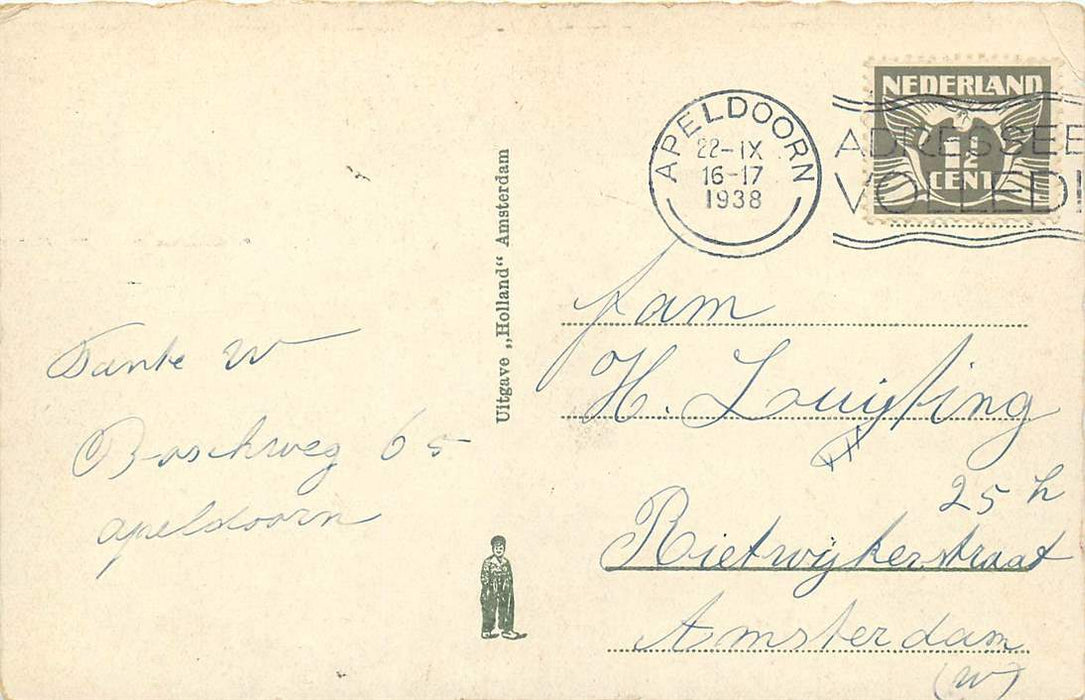 Tante W
Boschweg 65
Apeldoorn
Uitgave „Holland“ Amsterdam
APELDOORN
22-IX
16-17
1938
ADRESSEER
VOLLEDIG
NEDERLAND
1½
CENT
fam
H. Luijting
25 h
Rietwijkerstraat
Amsterdam
(W)